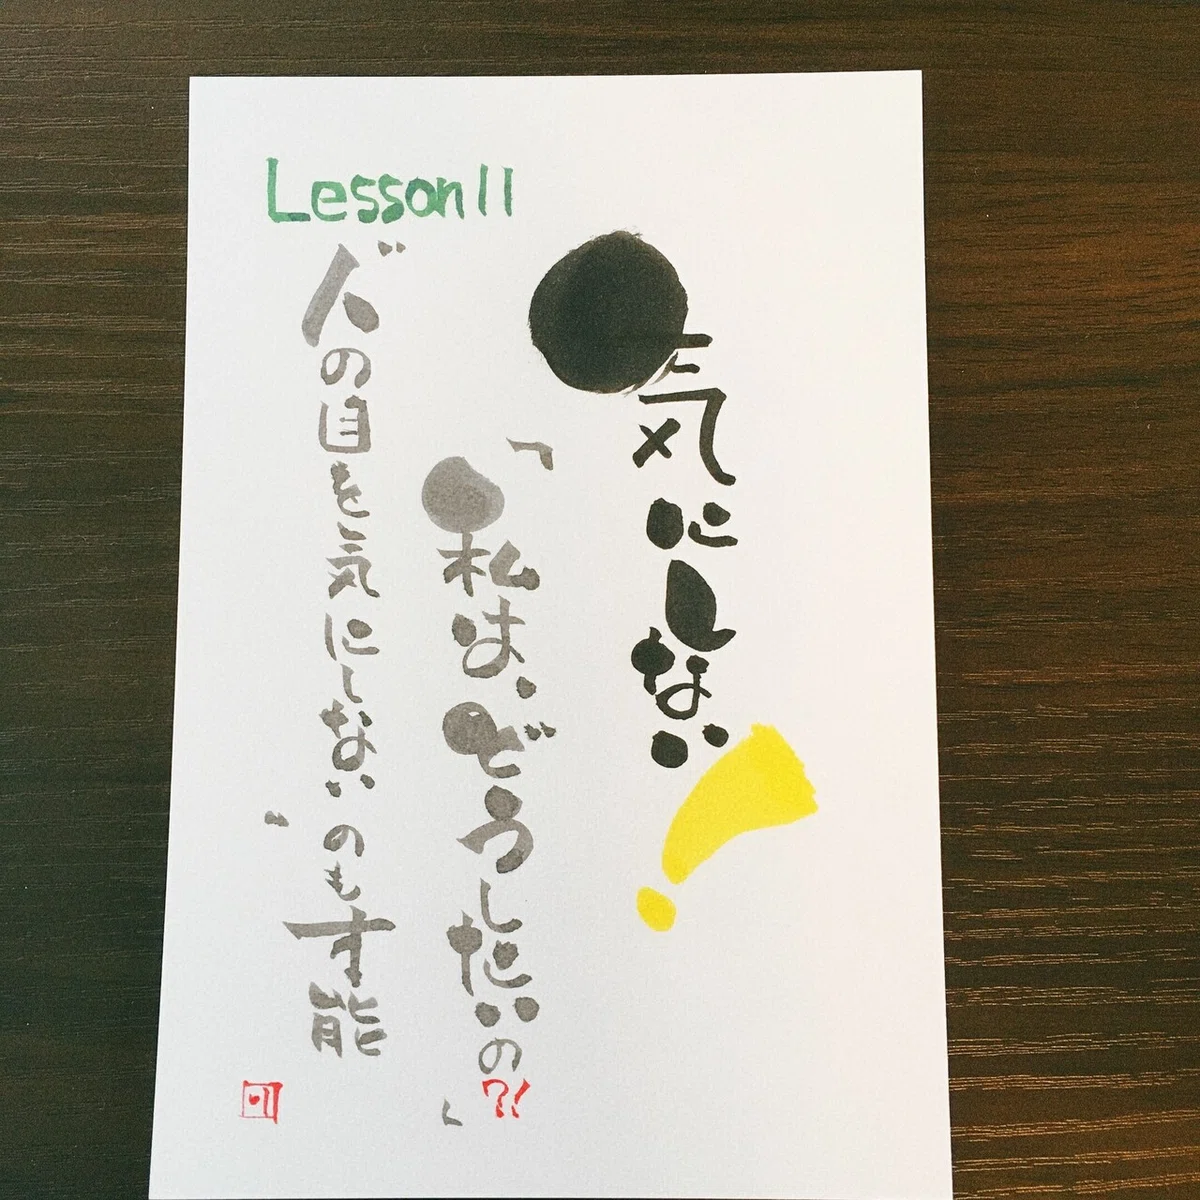 Lesson 11
気にしない!
「私は、どうしたいの?!」
"人の目を気にしない"のも才能